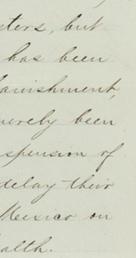 ters, but
has been
banishment,
merely been
spension of
delay their
Mexico on
ealth.